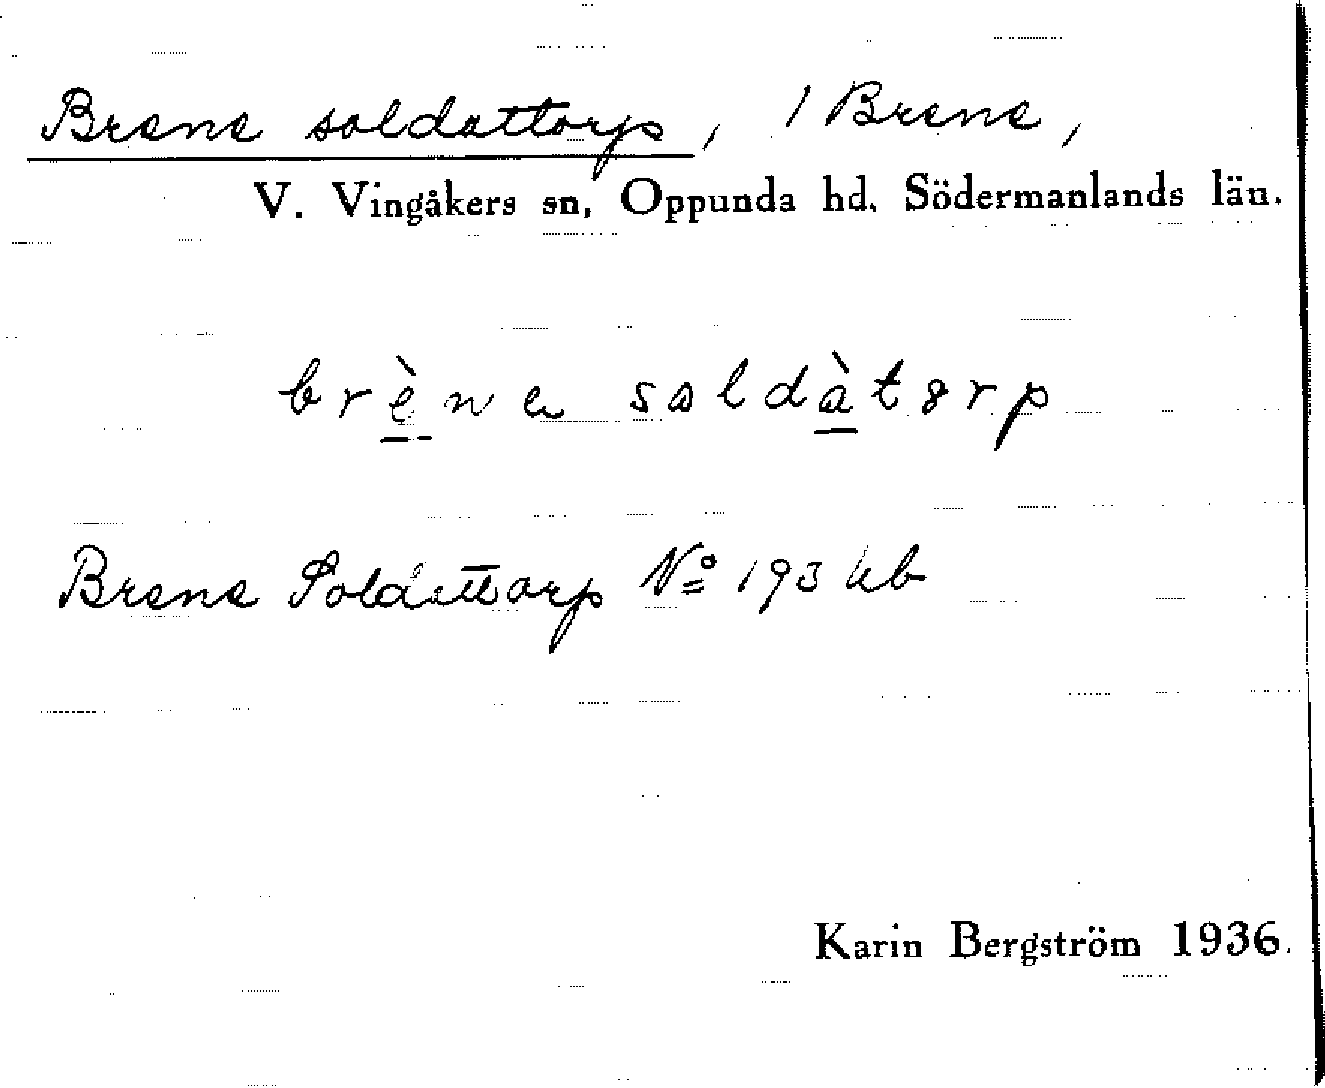 Brene soldattorp, / Brene,
V. Vingåkers sn, Oppunda hd. Södermanlands län.
brène soldàtorp
Brene Soldattorp Nº 193 Ub
Karin Bergström 1936.